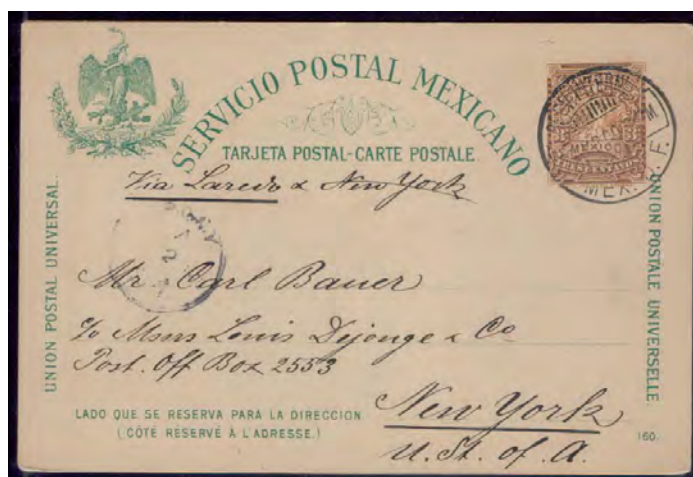 SERVICIO POSTAL MEXICANO
TARJETA POSTAL-CARTE POSTALE
Via Laredo & New York
UNION POSTAL UNIVERSAL.
UNION POSTALE UNIVERSELLE.
MEXICO
MEX. F.
Mr. Carl Bauer
c/o Messrs Louis Dejonge & Co
Post. Off Box 2553
New York
U. St. of. A.
LADO QUE SE RESERVA PARA LA DIRECCION
(CÔTÉ RÉSERVÉ À L'ADRESSE.)
160.